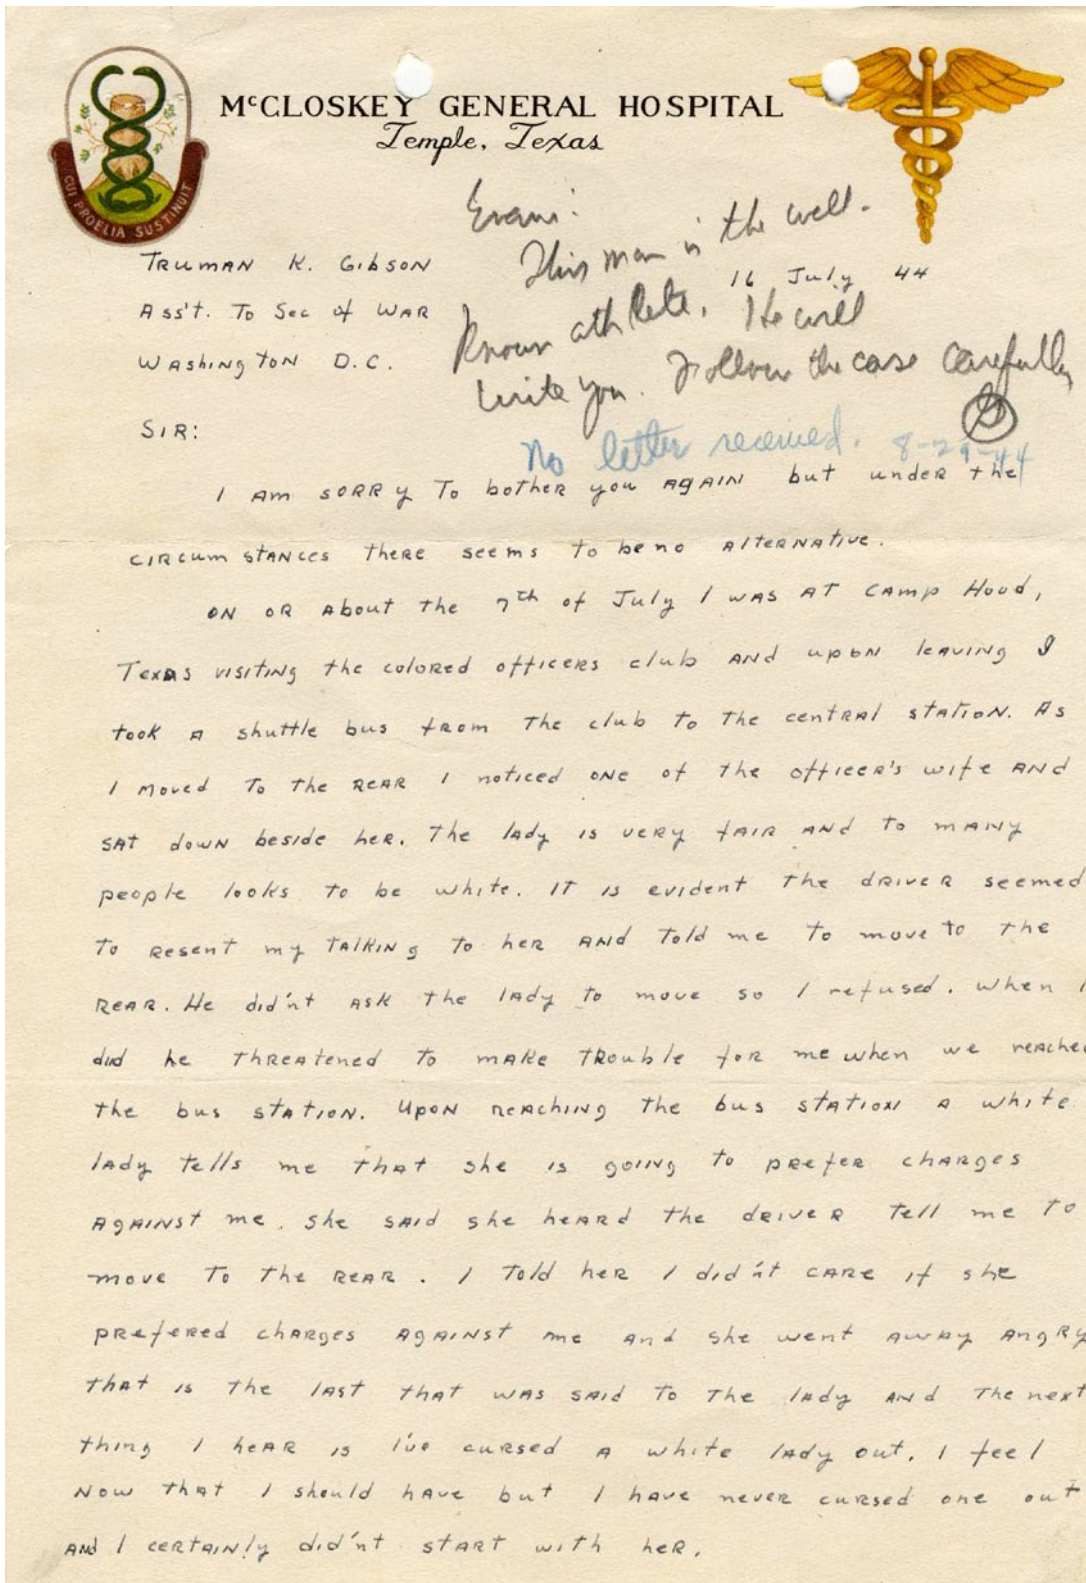 McCLOSKEY GENERAL HOSPITAL
Temple, Texas
CUI PROELIA SUSTINUIT
Evans:
This man is the well-
Known athlete. He will
write you. Follow the case carefully
G
No letter received. 8-29-44
TRUMAN K. GIBSON
16 July 44
Ass't. To Sec of WAR
WAshington D.C.
SIR:
I AM SORRY To bother you AGAIN but under the
circumstances there seems to be no alternative.
ON OR About the 7th of July I WAS AT CAMP Hood,
Texas visiting the colored officers club AND upon leaving I
took A shuttle bus from the club to the central station. As
I moved To the REAR I noticed one of the officer's wife AND
SAT down beside her. The lady is very fair AND to MANY
people looks to be white. IT is evident the driver seemed
To Resent my TAlking to her AND Told me To move to the
REAR. He did'nt ASK the lady to move so I refused. When I
did he threatened to make Trouble for me when we reached
the bus station. Upon reaching the bus station A white
lady tells me that she is going to prefer charges
AgAINst me. She said she heard the driver tell me to
move To the REAR. I Told her I did'nt care if she
prefered charges AgAINst me and she went AWAY ANgRy
That is the last that was said To The lady AND The next
thing I heAR is I've cursed A white lady out. I feel
Now that I should hAve but I have never cursed one out
AND I certainly did'nt start with her.